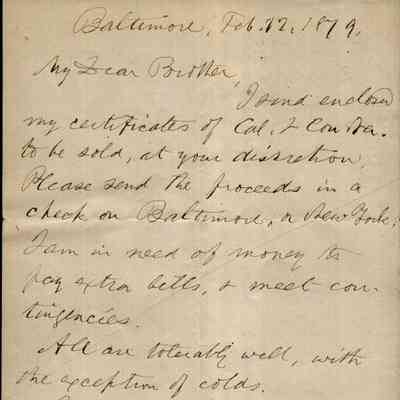 Baltimore, Feb. 12, 1879.
My Dear Brother,
I send enclosed
my certificates of Cal. & Con Va.
to be sold, at your discretion.
Please send the proceeds in a
check on Baltimore, or New York;
I am in need of money to
pay extra bills, & meet con-
tingencies.
All are tolerably well, with
the exception of colds.